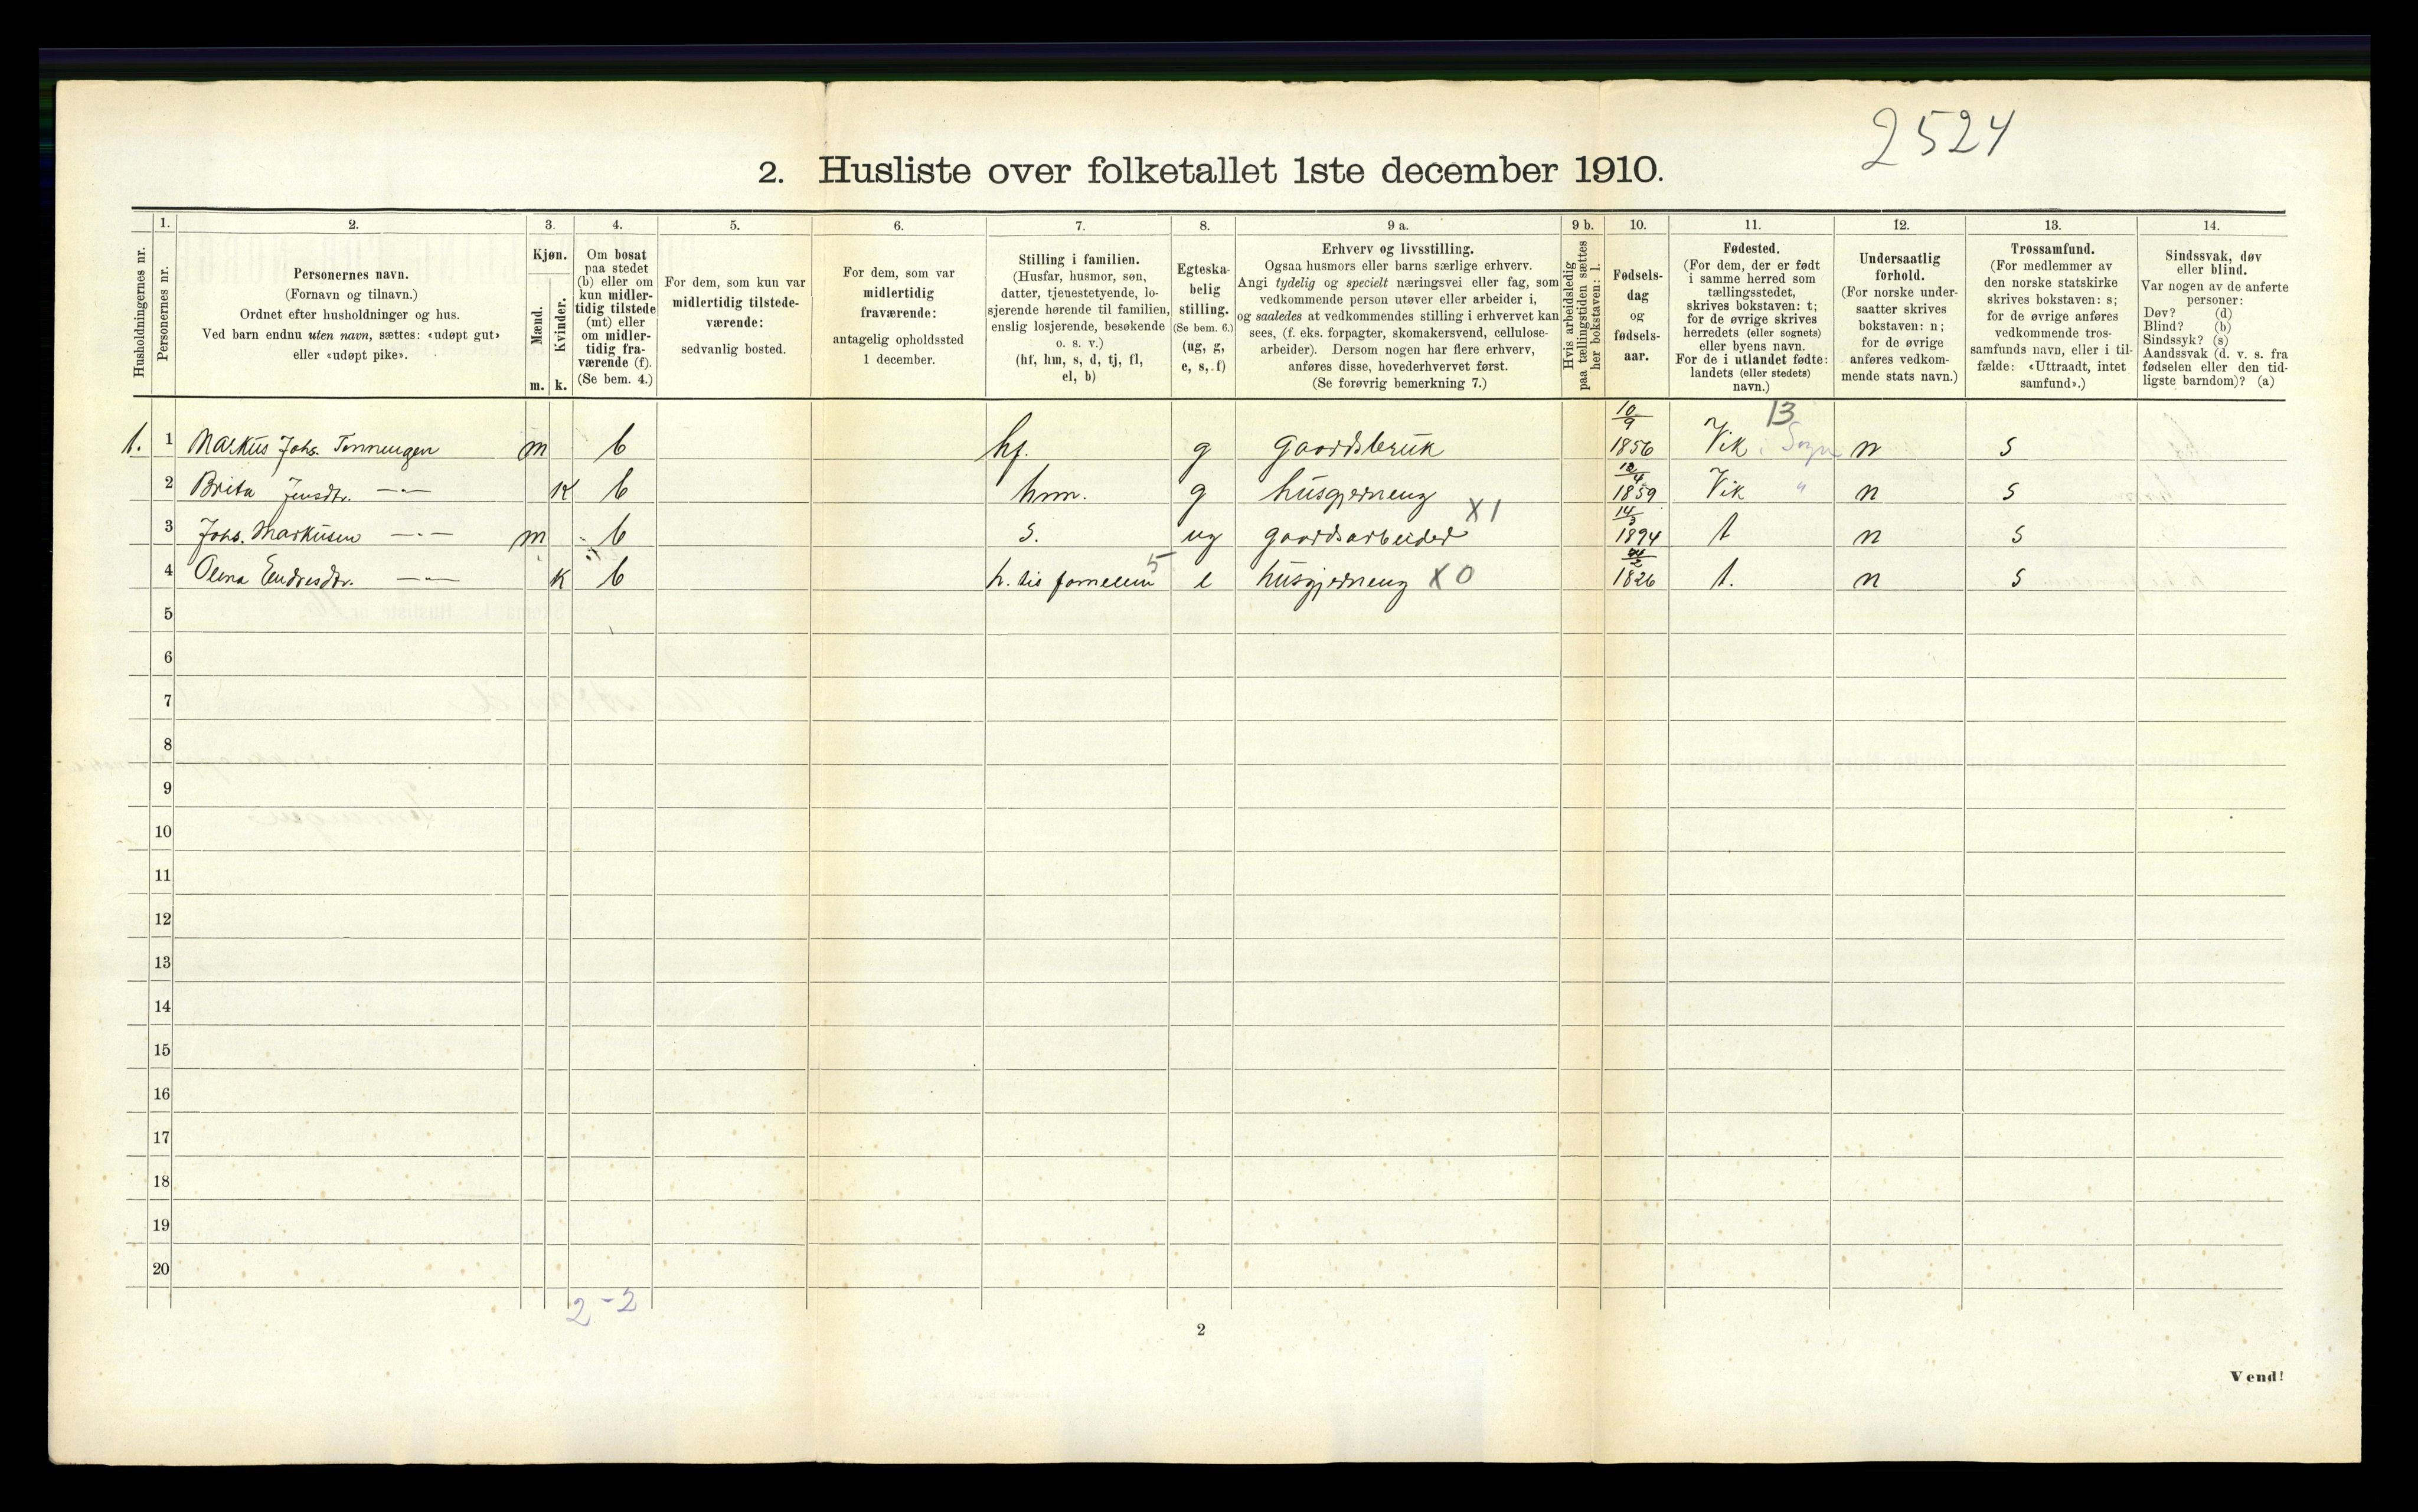 2524
2. Husliste over folketallet 1ste december 1910.
Husholdningernes nr.
1.
Personernes nr.
2.
Personernes navn.
(Fornavn og tilnavn.)
Ordnet efter husholdninger og hus.
Ved barn endnu uten navn, sættes: «udøpt gut»
eller «udøpt pike».
3.
Kjøn.
Mænd.
Kvinder.
m. k.
4.
Om bosat
paa stedet
(b) eller om
kun midler-
tidig tilstede
(mt) eller
om midler-
tidig fra-
værende (f).
(Se bem. 4.)
5.
For dem, som kun var
midlertidig tilstede-
værende:
sedvanlig bosted.
6.
For dem, som var
midlertidig
fraværende:
antagelig opholdssted
1 december.
7.
Stilling i familien.
(Husfar, husmor, søn,
datter, tjenestetyende, lo-
sjerende hørende til familien,
enslig losjerende, besøkende
o. s. v.)
(hf, hm, s, d, tj, fl,
el, b)
8.
Egteska-
belig
stilling.
(Se bem. 6.)
(ug, g,
e, s, f)
9 a.
Erhverv og livsstilling.
Ogsaa husmors eller barns særlige erhverv.
Angi tydelig og specielt næringsvei eller fag, som
vedkommende person utøver eller arbeider i,
og saaledes at vedkommendes stilling i erhvervet kan
sees, (f. eks. forpagter, skomakersvend, cellulose-
arbeider). Dersom nogen har flere erhverv,
anføres disse, hovederhvervet først.
(Se forøvrig bemerkning 7.)
9 b.
Hvis arbeidsledig
paa tællingstiden sættes
her bokstaven: l.
10.
Fødsels-
dag
og
fødsels-
aar.
11.
Fødested.
(For dem, der er født
i samme herred som
tællingsstedet,
skrives bokstaven: t;
for de øvrige skrives
herredets (eller sognets)
eller byens navn.
For de i utlandet fødte:
landets (eller stedets)
navn.)
12.
Undersaatlig
forhold.
(For norske under-
saatter skrives
bokstaven: n;
for de øvrige
anføres vedkom-
mende stats navn.)
13.
Trossamfund.
(For medlemmer av
den norske statskirke
skrives bokstaven: s;
for de øvrige anføres
vedkommende tros-
samfunds navn, eller i til-
fælde: «Uttraadt, intet
samfund».)
14.
Sindssvak, døv
eller blind.
Var nogen av de anførte
personer:
Døv? (d)
Blind? (b)
Sindssyk? (s)
Aandssvak (d. v. s. fra
fødselen eller den tid-
ligste barndom)? (a)
13
1. 1 Markus Johs. Tenningen m b hf. g gaardsbruk 10/9 1856 Vik i Sogn n s
2 Brita Jensdtr. —"— k b hm. g husgjerneng 1859 Vik " n s
3 Johs. Markusen —"— m b s. ug gaardsarbeider X1 14/3 1894 t n s
4 Olena Endresdtr. —"— k b 5 e husgjerneng X0 1826 t. n s
5
6
7
8
9
10
11
12
13
14
15
16
17
18
19
20
2-2
2
Vend!